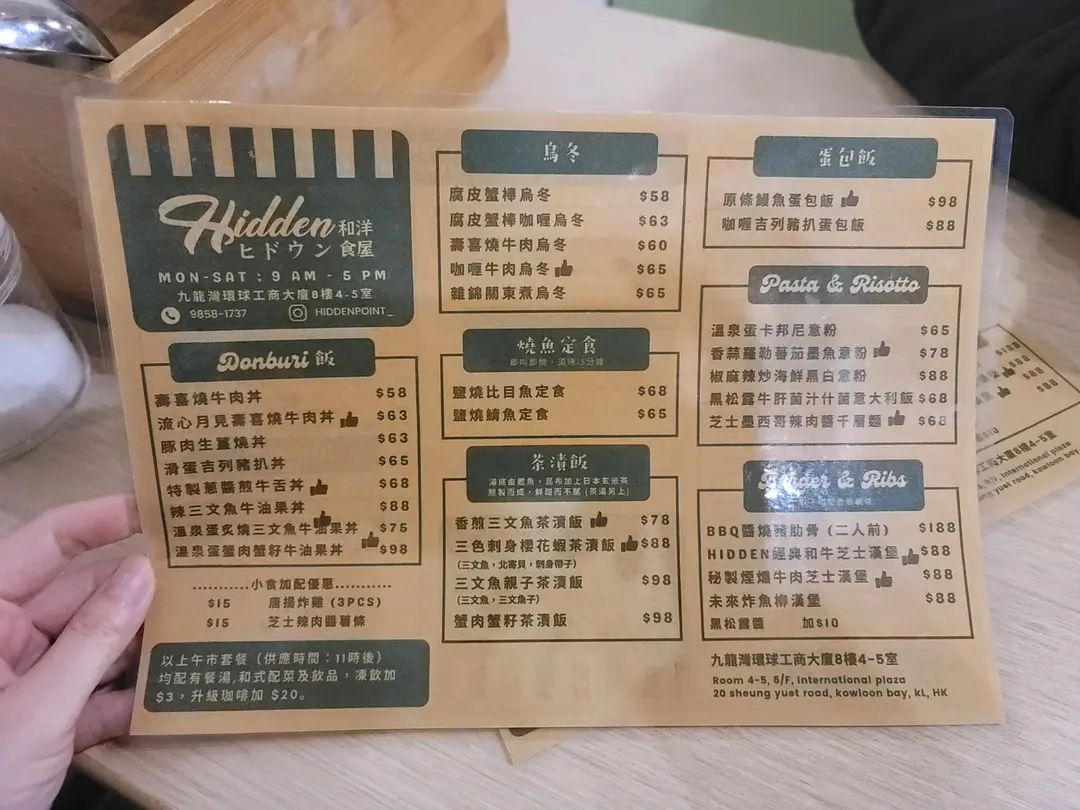 Hidden 和洋
ヒドウン 食屋
MON-SAT : 9 AM - 5 PM
九龍灣環球工商大廈8樓4-5室
9858-1737 HIDDENPOINT_
Donburi 飯
壽喜燒牛肉丼 $58
流心月見壽喜燒牛肉丼 $63
豚肉生薑燒丼 $63
滑蛋吉列豬扒丼 $65
特製蔥醬煎牛舌丼 $68
辣三文魚牛油果丼 $88
溫泉蛋炙燒三文魚牛油果丼 $75
溫泉蛋蟹肉蟹籽牛油果丼 $98
...........小食加配優惠...........
$15 唐揚炸雞 (3PCS)
$15 芝士辣肉醬薯條
以上午市套餐（供應時間：11時後）
均配有餐湯,和式配菜及飲品，凍飲加
$3，升級珈啡加 $20。
烏冬
腐皮蟹棒烏冬 $58
腐皮蟹棒咖喱烏冬 $63
壽喜燒牛肉烏冬 $60
咖喱牛肉烏冬 $65
雜錦關東煮烏冬 $65
燒魚定食
即叫即燒，須時15分鐘
鹽燒比目魚定食 $68
鹽燒鯖魚定食 $65
茶漬飯
湯底由鰹魚，昆布加上日本玄米茶
熬製而成，鮮甜而不膩 (茶湯另上)
香煎三文魚茶漬飯 $78
三色刺身櫻花蝦茶漬飯 $88
(三文魚，北寄貝，刺身帶子)
三文魚親子茶漬飯 $98
(三文魚，三文魚子)
蟹肉蟹籽茶漬飯 $98
蛋包飯
原條鰻魚蛋包飯 $98
咖喱吉列豬扒蛋包飯 $88
Pasta & Risotto
溫泉蛋卡邦尼意粉 $65
香蒜羅勒蕃茄墨魚意粉 $78
椒麻辣炒海鮮黑白意粉 $88
黑松露牛肝菌汁什菌意大利飯 $68
芝士墨西哥辣肉醬千層麵 $68
Burger & Ribs
BBQ醬燒豬肋骨 (二人前) $188
HIDDEN經典和牛芝士漢堡 $88
秘製煙燻牛肉芝士漢堡 $88
未來炸魚柳漢堡 $88
黑松露醬 加$10
九龍灣環球工商大廈8樓4-5室
Room 4-5, 8/F, International plaza
20 sheung yuet road, kowloon bay, kL, HK
$88
$88
工商大廈8樓4-5室
International plaza
ung yuet road, kowloon bay